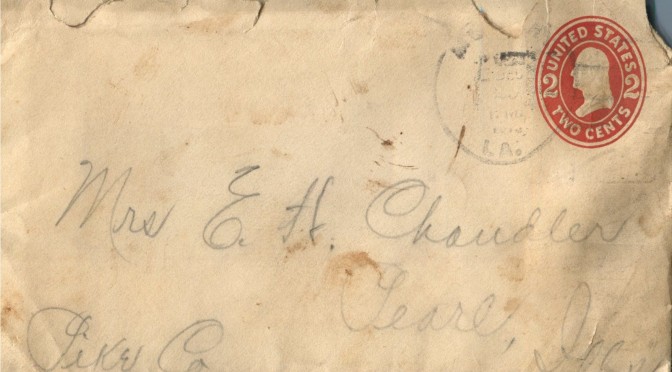 UNITED STATES
2 2
TWO CENTS
LA.
Mrs E. H. Chandler
Pearl,
Pike Co